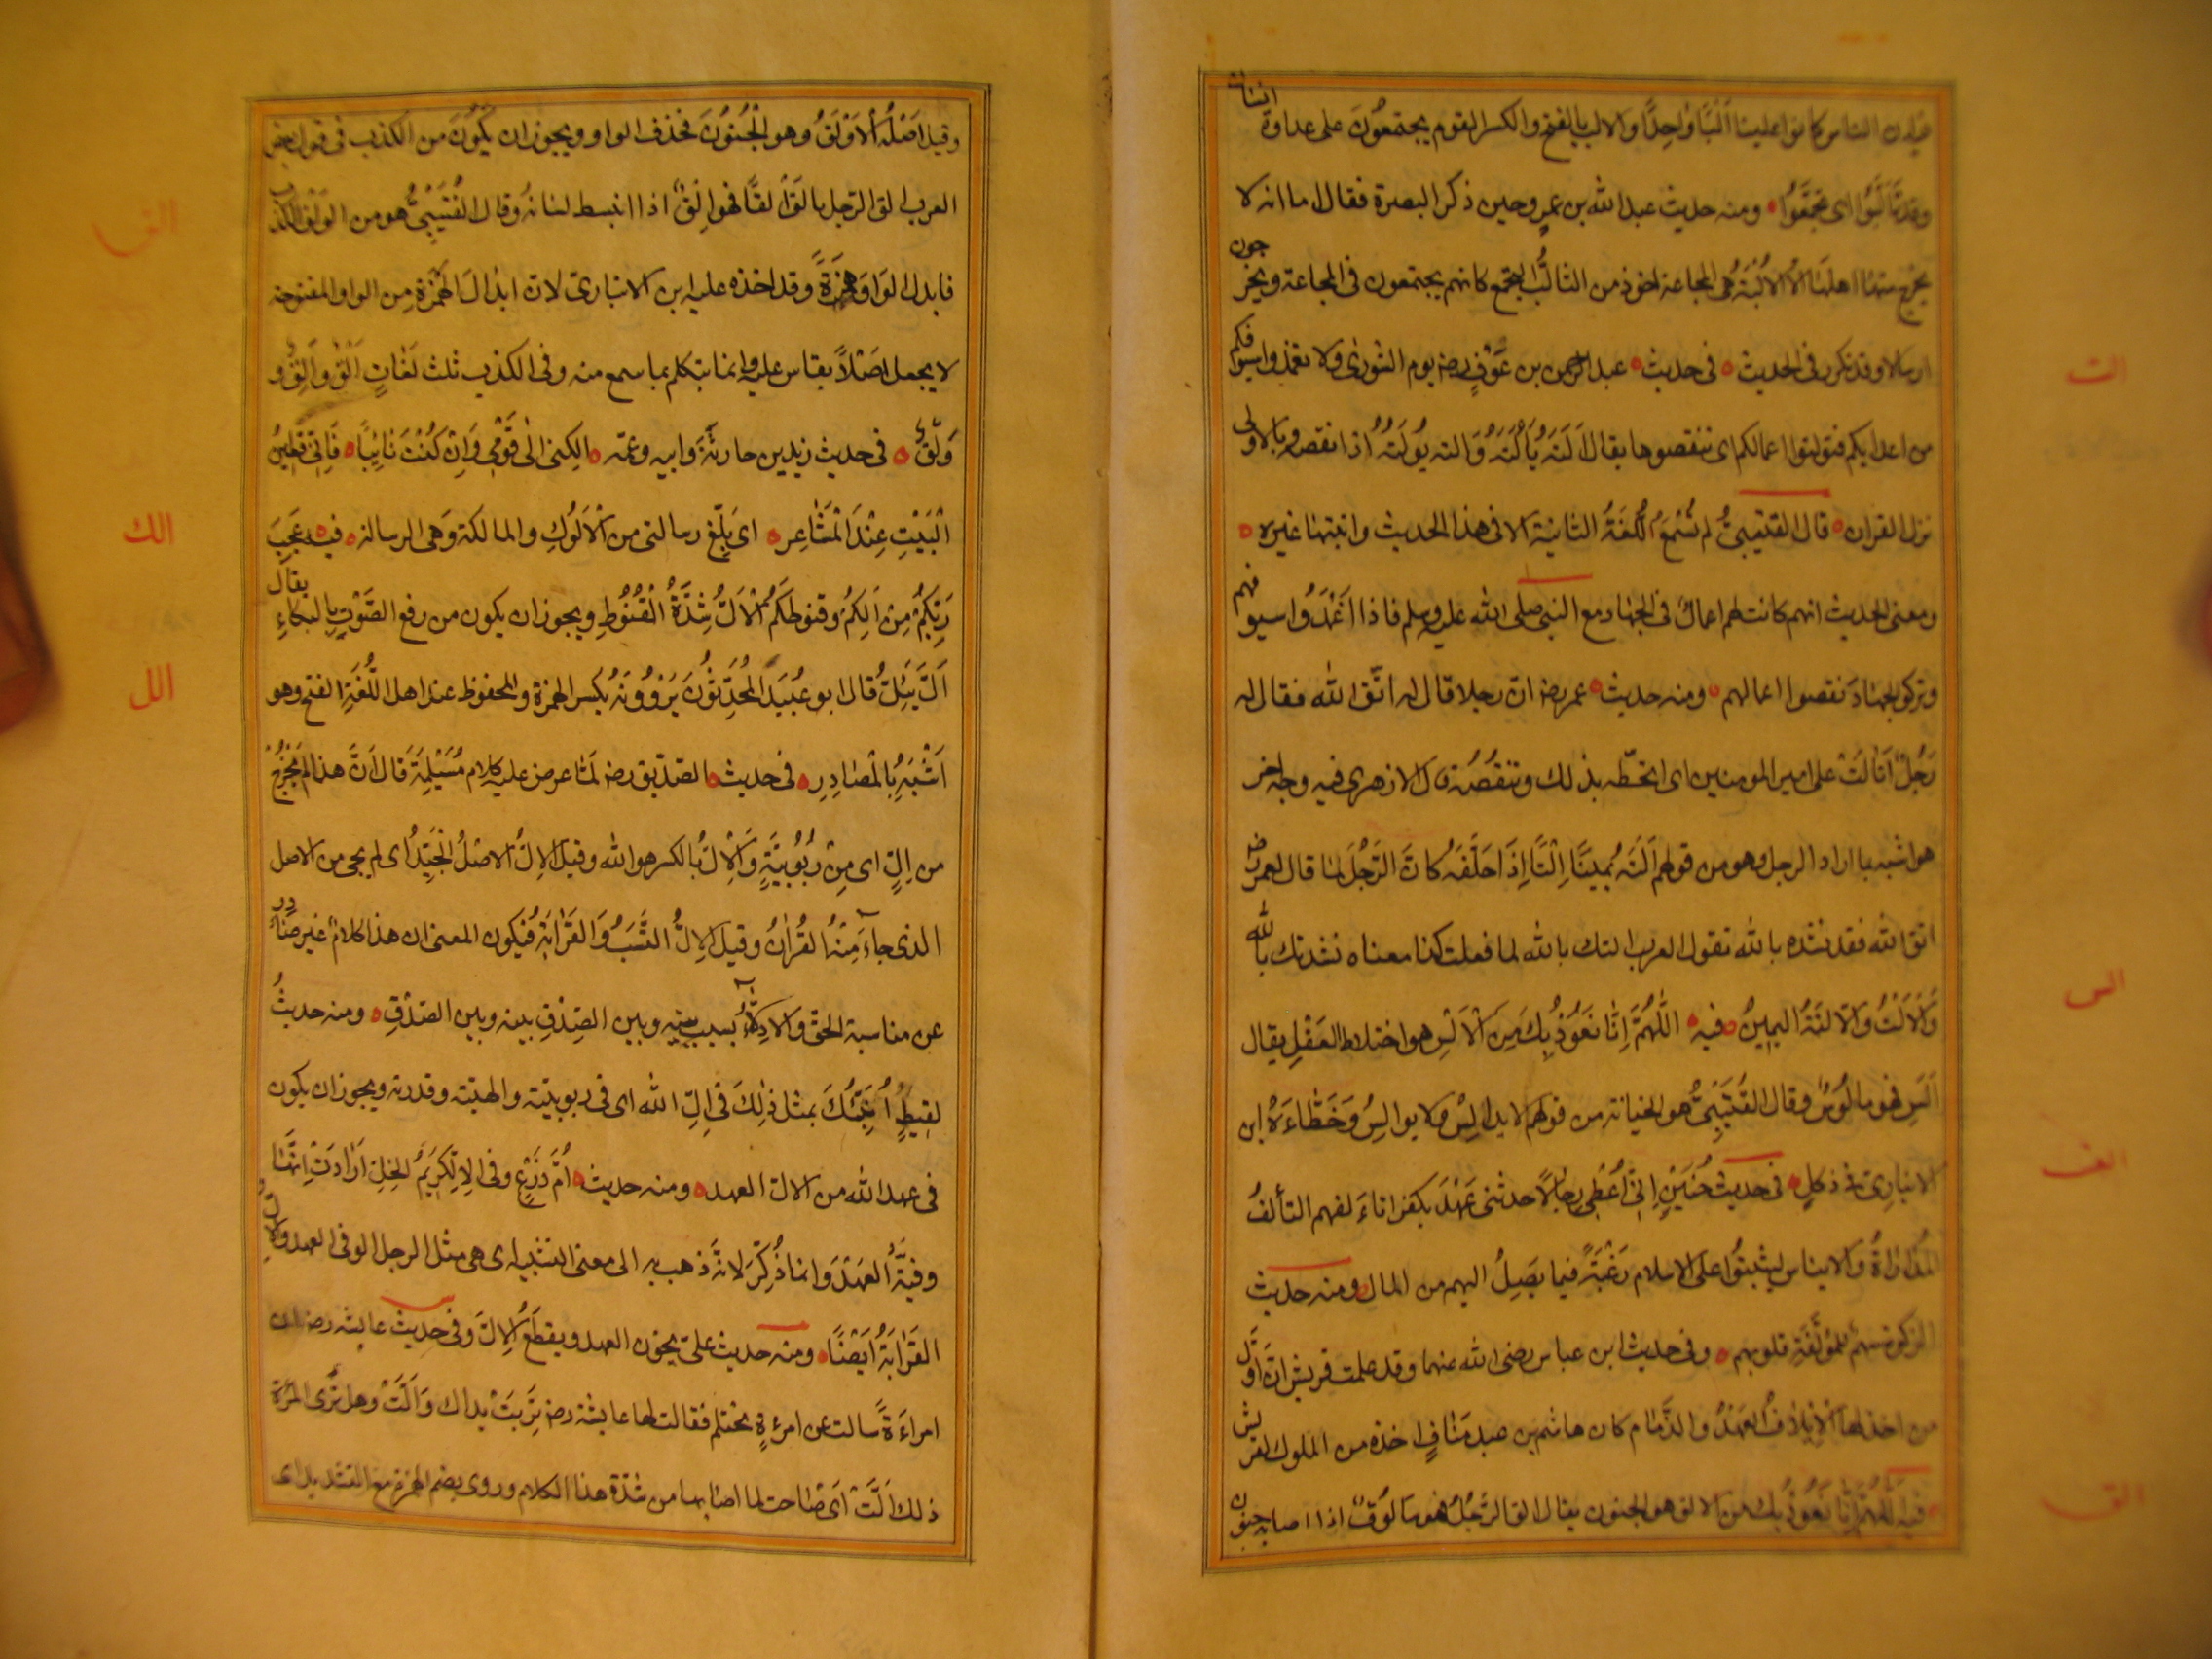 ان الناس كانوا علينا اَلْبًا وٰاحِدًا والالب بالفتح والكسر القوم يجتمعُونَ على عداوة انسان
وقد تَاَلَّبُوا اى تجَمَّعُوا ومنه حديث عبد الله بن عمرو حين ذكر البصرة فقال اما انه لا
يخرج منها اهلها الا الاُلْبَة هى المجاعة ماخوذ من التألُّب التجمّع كانهم يجتمعون فى المجاعة ويخرجون
ارسالا وقد تكرر فى الحديث فى حديث عبد الرحمن بن عَوْفٍ رضه يوم الشورٰى ولا تغمدوا سيوفكم
من اعدايكم فتولتوا اعمالكم اى تنقصوها يقال اَلَتَهُ يَأْلِتُهُ وَالته يُولتُهُ اذا نقصه وبالاولى
نزل القران قال القتيبىُّ لم تُسْمَعُ اللُّغَةُ الثانيَة الا فى هذا الحديث واثبتها غيره
ومعنى الحديث انهم كانت لهم اعمال فى الجهاد مع النبى صلى الله عليه وسلم فاذا اَغْمَدُوا سيوفهم
وتركوا لجهادَ نقصوا اعمالهم ومنه حديث عمر رضه انّ رجلا قال له اتّق الله فقال له
رَجُلٌ اَتَالَتُ على امير المومنين اى اتحطّه بذلك وتنقُصُهُ قال الازهرى فيه وجه اخر
هو اشبه بما اراد الرجل وهو من قولهم اَلَتَهُ يمينًا اِلْتًا اِذَا حَلَّفَهُ كانَ الرَّجُلَ لما قال لعمر رضه
اتق الله فقد نشده بالله تقول العرب التك بالله لما فعلت كذا معناه نشدتك بالله
وَالاَلْتُ وَالاَلتَةُ اليمينُ فيه اَللّٰهُمَّ اِنّا نَعُوْذُ بِكَ مِنَ الْاَلْسِ هو اختلاط العَقْلِ يقال
اُلِسَ فهو مالُوسٌ وقال القُتَيْبِىُّ هو الخيانة من قولهم لا يدالِسُ ولا يوالِسُ وَخَطَّاءَهُ ابن
الانبارِى فى ذلك فى حديث حُنَيْنٍ اِنِّى اُعْطِى رِجٰالًا حدثنى عَهْدٍ بكفر اتاءَلفهم التألفُ
المُدٰارٰاةُ وَالايناس ليثبتُوا على الاسلام رَغْبَةً فيما يَصِلُ اليهم من المال ومنه حديث
الزكوة سهم للمؤلَّفَةِ قلوبهم وفى حديث ابن عباس رضى الله عنهما وقد علمت قريش انّ اوّل
من اخذ لها الْاِيلافُ العَهْدُ والذِّمٰام كان هاشم بن عبد مَنٰافٍ اخذه من الملوك لقريش
فيه اللّٰهُمَّ اِنّا نَعُوْذُ بِك من الالق هو الجنون يقال الق الرَّجُلُ فهو مَالُوقٌ اذا اصابه جنون
الت
الس
الف
الق
وقيل اَصْلُهُ الْاَوْلَقُ وهو الْجُنُونُ فحذف الواو ويجوز ان يكُونَ من الكذب فى قول بعض
العرب الق الرّجل يالقُ اَلقًا فهو اٰلِقٌ اذا انبسط لسانه وقال القُتَيْبِىُّ هو من الولق الكذب
فابدل الوَاو هَمْزَةً وقد اخذه عليه ابن الانبارى لان ابدٰالَ الْهَمْزَة مِن الواو المفتوحة
لا يجعل اصلًا يقاس عليه وانما يتكلم بما سمع منه وفى الكذب ثلث لغاتٍ اَلْقٌ وَاِلْقٌ و
وَلْقٌ فى حديث زيد بن حارثَةَ وابيه وعمّه اَلِكنى الٰى قَوْمِى وَاِنْ كُنْتُ نٰائِيًا فَاِنِّى قَطِينُ
الْبَيْتِ عِنْدَ الْمَشٰاعِرِ اى بَلِّغ رسالتى من الْاَلُوْكِ والمالكة وَهى الرسالة فيه عَجِبَ
رَبُّكُمْ مِنْ اَلِّكُمْ وقنوطكُمْ الْاَلُّ شِدَّةُ الْقُنُوْطِ ويجوز ان يكون من رفع الصَّوْتِ بالبكاءِ يقال
اَلَّ يَئِلُّ قال ابو عُبَيَد المُحَدِّثُونَ يَرْوُوْنَهُ بكسر الهمزة والمحفوظ عند اهل اللُّغَةِ الفتح وهو
اَشْبَهُ بِالْمَصٰادِرِ فى حديث الصّدّيق رضه لَمّا عرض عليه كلام مُسَيْلِمَةَ قال اَنَّ هذا لم يَخْرُجْ
من اِلٍّ اى مِنْ رُبُوْبِيَّةٍ وَالْاِلُّ بالكسر هو الله وقيل الاِلُّ الاصْلُ الجَيِّدُ اى لم يجى من الاصل
الذى جآءَ مِنْهُ القُرْاٰنُ وقيل الاِلُّ النَّسَبُ وَالقَرٰابَة فَيكون المعنى ان هذا كلامٌ غير صٰادر
عن مناسبة الحقّ وَالادِلآءُ بسبب بينه وبين الصِّدْقِ بينه وبين الصّدْقِ ومنه حديثُ
لقيطٍ اُنَبِّئُكَ بمثل ذٰلِكَ فى اِلِّ الله اى فى ربوبيّته والهيّته وقدرته ويجوز ان يكون
فى عهد الله من الالّ العهد ومنه حديث اُمّ زَرْعٍ وفى الاِلّ كَرِيْمُ الخِلِّ اَرٰادَتْ اِنَّهٰا
وفيَّةُ العَهْدَ وَانما ذُكِّرَ لانّهُ ذهب به الى معنى التشبيه اى هى مثل الرجل الوفى العهد والاِلّ
القَرٰابَةُ اَيْضًا ومنه حديث علىّ يخون العهد ويقطَعُ الاِلّ وفى حديث عايشه رضه ان
امراءَةً سالت عن امرءةٍ تحتلم فقالت لها عايشه رضه تَرِبَتْ يداك وَاَلَّتْ وهل تَرى المرْءَة
ذلك اَلَّتْ اَىْ صٰاحت لما اصابها من شدّة هذا الكلام وروى بضم الهمزة مع التشديد اى
الق
الك
الل